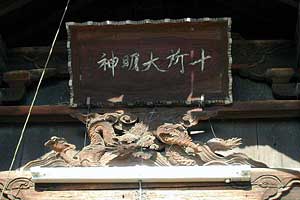 十所大明神